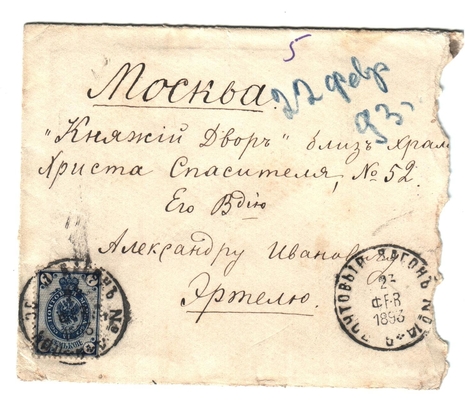 5
Москва.
22 февр
93.
"Княжій Дворъ" близъ Храм
Христа Спасителя, № 52.
Его Вдію
Александру Иванов
Эртелю.
ПОЧТОВЫЙ ВАГОНЪ №
23
ФЕВ
1893